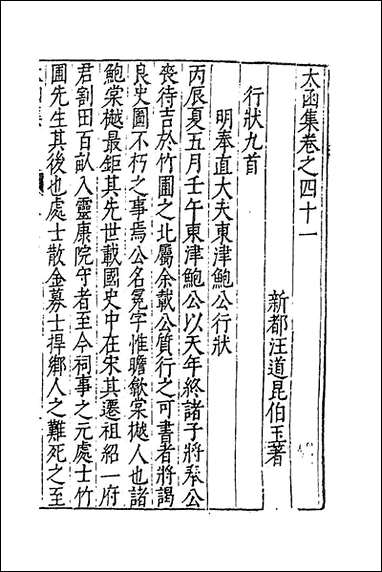 太函集卷之四十一
新都汪道昆伯玉著
行狀九首
明奉直大夫東津鮑公行狀
丙辰夏五月壬午東津鮑公以天年終諸子將奉公
喪待吉於竹圃之北屬余載公質行之可書者將謁
良史圖不朽之事焉公名冕字惟瞻歙棠樾人也諸
鮑棠樾最鉅其先世載國史中在宋其遷祖紹一府
君割田百畝入靈康院守者至今祠事之元處士竹
圃先生其後也處士散金募士捍鄉人之難死之至